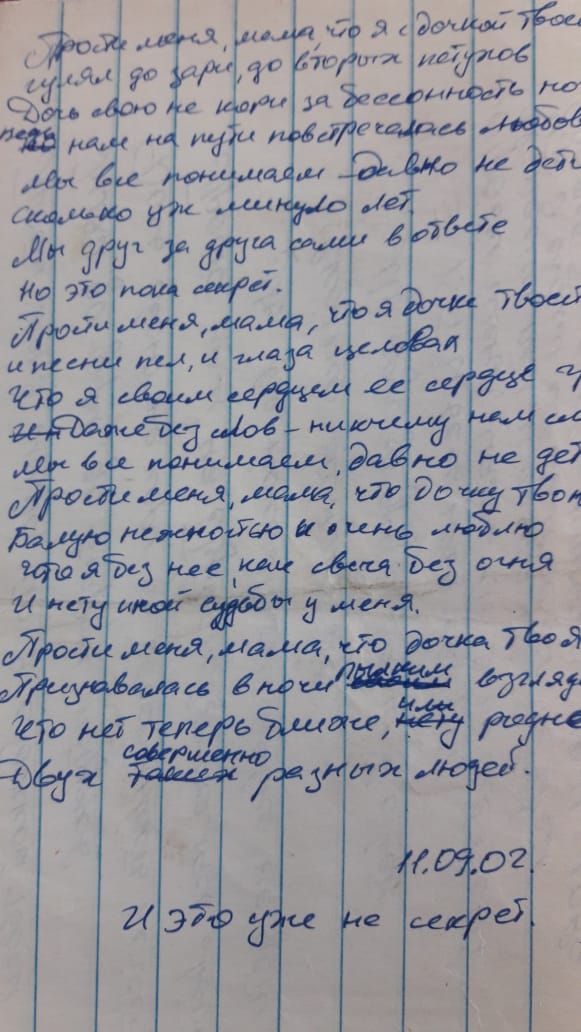 Прости меня, мама, что я с дочкой твоей
гулял до зари, до вторых петухов
Дочь свою не кори за бессонность но
ведь нам на пути повстречалась любов
Мы все понимаем – давно не дети
сколько уж минуло лет.
Мы друг за друга сами в ответе
Но это пока секрет.
Прости меня, мама, что я дочке твоей
и песни пел, и глаза целовал
Что я своим сердцем ее сердце
Даже без слов – ни к чему нам
Мы все понимаем, давно не дет
Прости меня, мама, что дочку твою
Балую нежностью и очень люблю
Что я без нее, как свеча без огня
И нету иной судьбы у меня.
Прости меня, мама, что дочка твоя
Признавалась в ночи пылким взгляд
Что нет теперь ближе, или родне
Двух совершенно разных людей.
11.09.02.
И это уже не секрет.